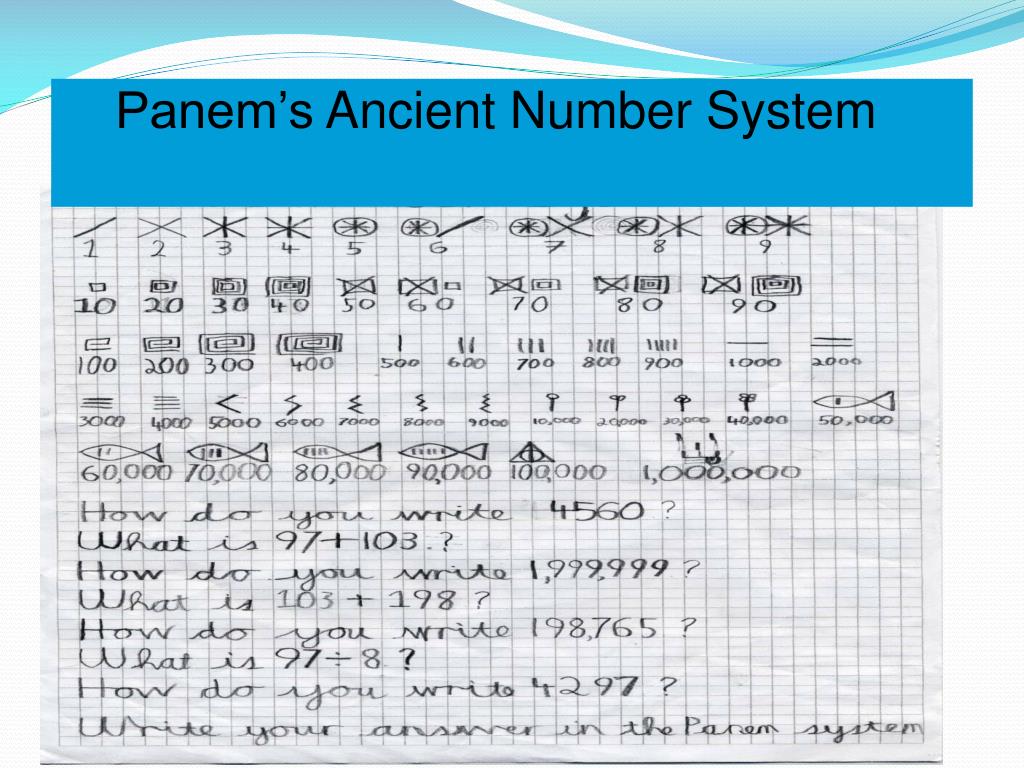 Panem’s Ancient Number System
1 2 3 4 5 6 7 8 9
10 20 30 40 50 60 70 80 90
100 200 300 400 500 600 700 800 900 1000 2000
3000 4000 5000 6000 7000 8000 9000 10,000 20,000 30,000 40,000 50,000
60,000 70,000 80,000 90,000 100,000 1,000,000
How do you write 4560 ?
What is 97+103.?
How do you write 1,999,999 ?
What is 103 + 198 ?
How do you write 198,765 ?
What is 97÷8 ?
How do you write 4297 ?
Write your answer in the Panem system